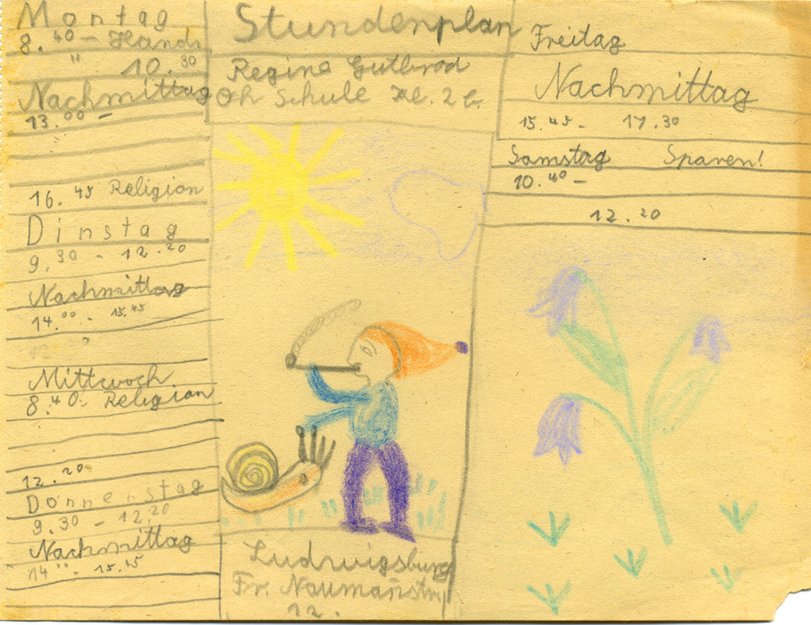 Montag
8.40 – Hands
" 10.30
Nachmittag
13.00 –
16.45 Religion
Dinstag
9.30 – 12.20
Nachmittag
14.00 – 15.45
Mittwoch
8.40 – Religion
12.20
Donnenstag
9.30 – 12.20
Nachmittag
14 " – 15.45
Stundenplan
Regine Gutbrod
Oh Schule Kl. 2 b.
Ludwigsburg
Fr. Naumannstr.
12.
Freitag
Nachmittag
15.45 – 17.30
Samstag Sparen!
10.40 –
12.20